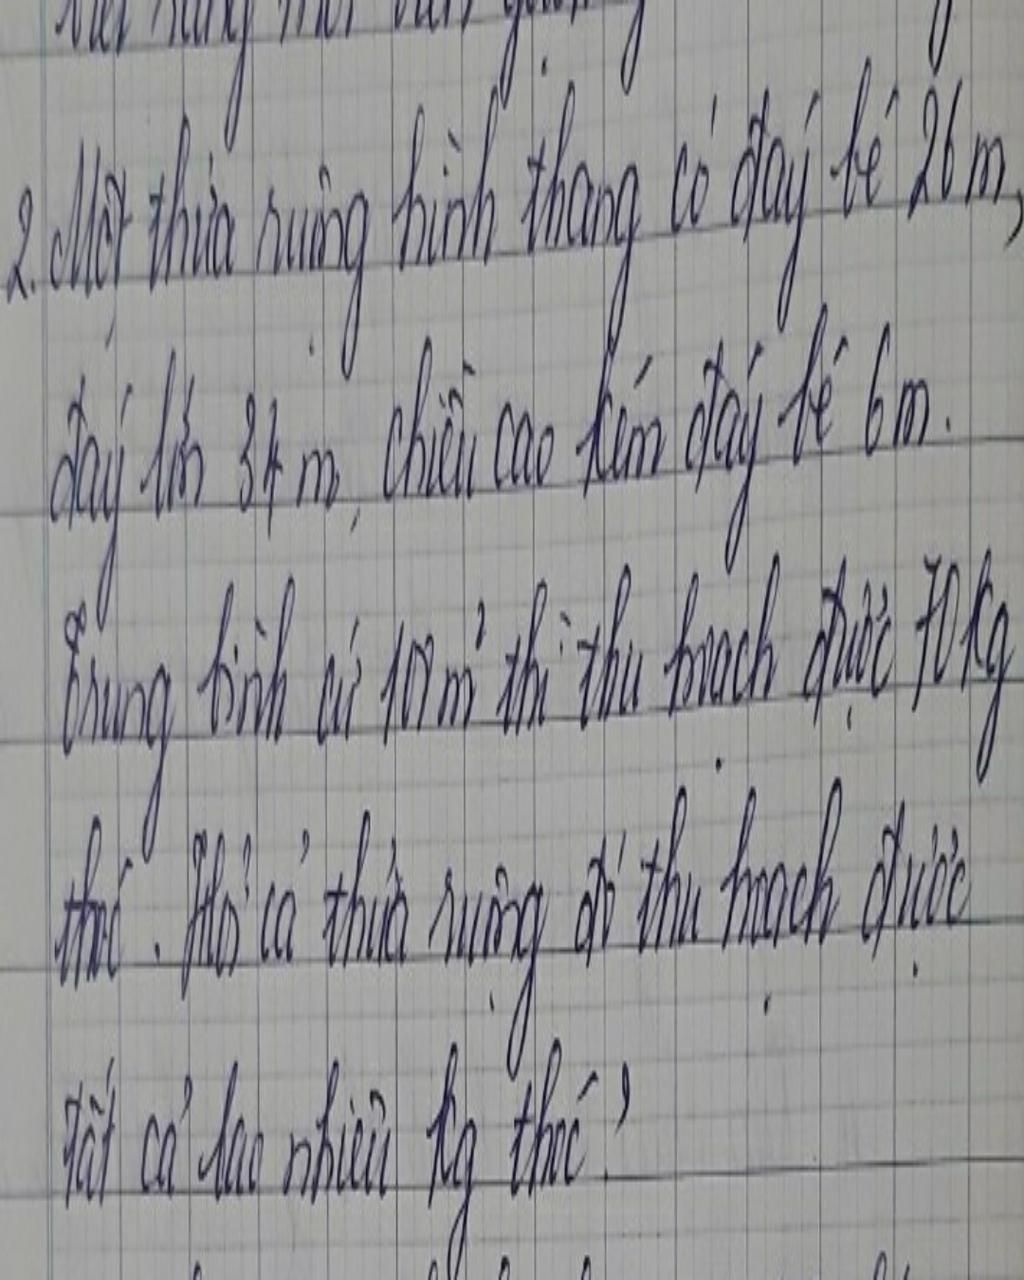 2. Một thửa ruộng hình thang có đáy bé 26 m,
đáy lớn 34 m, chiều cao kém đáy bé 6 m.
Trung bình cứ 100 m² thì thu hoạch được 70 kg
thóc. Hỏi cả thửa ruộng đó thu hoạch được
tất cả bao nhiêu kg thóc?